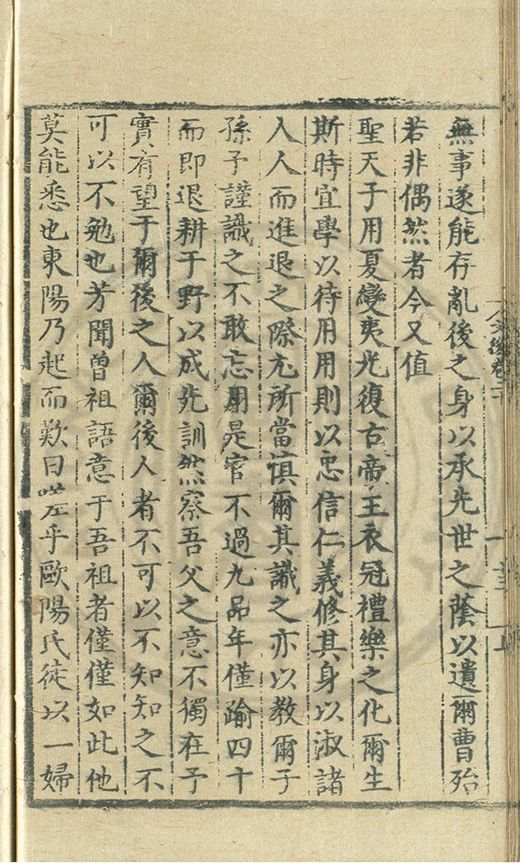 無事遂能存亂後之身以承先世之蔭以遺爾曹殆
若非偶然者今又值
聖天子用夏變夷光復古帝王衣冠禮樂之化爾生
斯時宜學以待用用則以忠信仁義修其身以淑諸
人人而進退之際尤所當慎爾其識之亦以教爾子
孫予謹識之不敢忘用是官不過九品年僅踰四十
而即退耕于野以成先訓然察吾父之意不獨在予
實有望于爾後之人爾後人者不可以不知知之不
可以不勉也芳聞曽祖語意于吾祖者僅僅如此他
莫能悉也東陽乃起而歎曰嗟乎歐陽氏徒以一婦